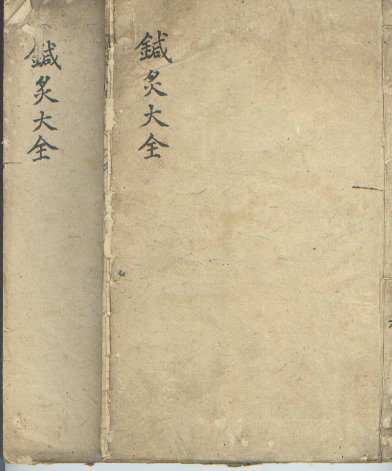 鍼灸大全
鍼灸大全